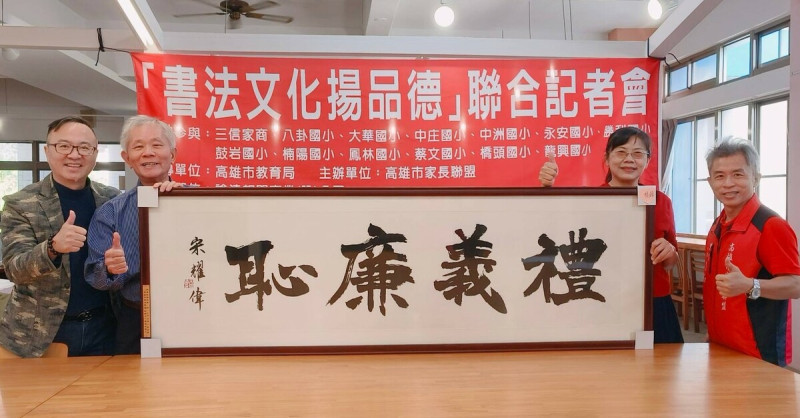 「書法文化揚品德」聯合記者會
參與：三信家商、八卦國小、大華國小、中庄國小、中洲國小、永安國小、
鼓岩國小、楠陽國小、鳳林國小、蔡文國小、橋頭國小、龍興國小
單位：高雄市教育局 主辦單位：高雄市家長聯盟
禮義廉恥
宋耀偉